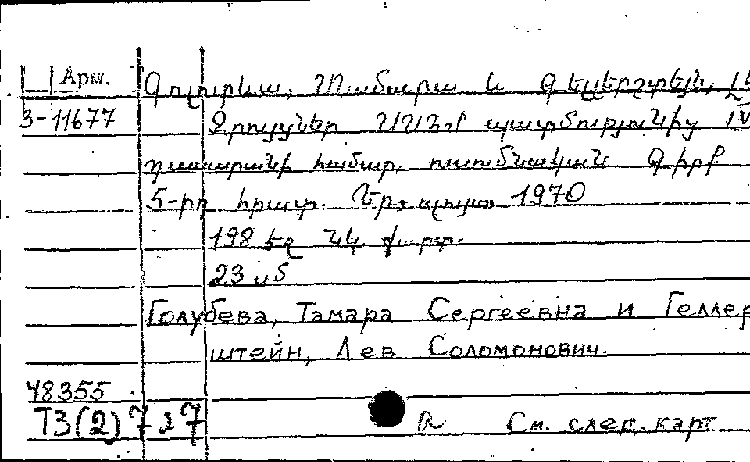 Арм. Գոլուբևա, Թամարա և Գելլերշտեյն, Լև
3-11677 Զրույցներ ՍՍՀՄ պատմությունից IV
դասարանի համար. ուսումնական գիրք
5-րդ հրատ. Եր., Լույս, 1970
198 էջ նկ. քարտ.
23 սմ
Голубева, Тамара Сергеевна и Геллер
штейн, Лев Соломонович.
48355
Т3(2)7я7 См. след. карт